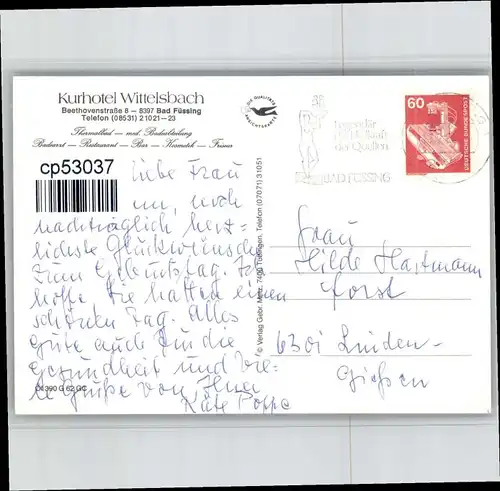 Kurhotel Wittelsbach
Beethovenstraße 8 – 8397 Bad Füssing
Telefon (08531) 21021–23
Thermalbad — med. Badeabteilung
Badearzt — Restaurant — Bar — Kosmetik — Friseur
cp53037
Liebe Frau
noch
nachträglich herz-
lichste Glückwünsche
zum Geburtstag. Ich
hoffe Sie hatten einen
schönen Tag. Alles
Gute auch für die
Gesundheit und vie-
le Grüße von Ihrer
Käte Poppe
G 62 GC
DIE QUALITÄTS
ANSICHTSKARTE
© Verlag Gebr. Metz, 7400 Tübingen, Telefon (07071) 31051
Legendär
Heilkraft
der Quellen
BAD FÜSSING
60
DEUTSCHE BUNDESPOST
Frau
Hilde Hartmann
Forst
6301 Linden-
Gießen